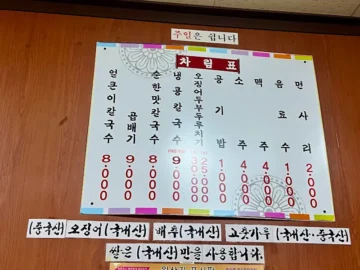 주일은 쉽니다
차림표
얼큰이칼국수 8.000
곱배기 9.000
순한맛칼국수 8.000
냉콩칼국수 9.000
오징어두부두루치기
공기밥 1.000
소주 4.000
맥주 4.000
음료수 1.000
면사리 2.000
(중국산) 오징어(국내산) 배추(국내산) 고춧가루 (국내산·중국산)
쌀은(국내산)만을사용합니다.